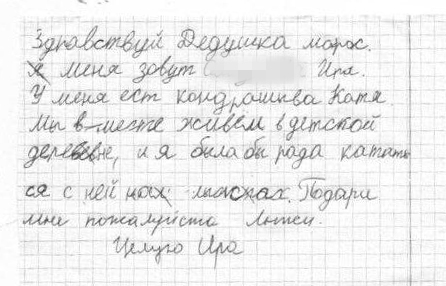 Здравствуй Дедушка морос.
Я меня зовут Ира.
У меня ест кондрашква Катя.
Мы в месте живём в детской
деревне, и я была бы рада кататы
ся с ней на лыжах. Подари
мне пожалуйста лыжи.
Целую Ира